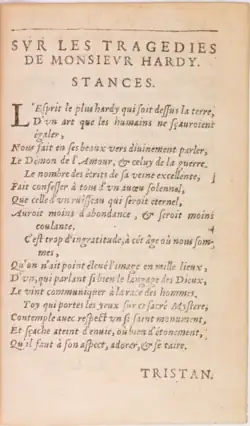 SVR LES TRAGEDIES
DE MONSIEVR HARDY.
STANCES.
L'Esprit le plus hardy qui soit dessus la terre,
D'vn art que les humains ne sçauroient
égaler,
Nous fait en ses beaux vers diuinement parler,
Le Démon de l'Amour, & celuy de la guerre.
Le nombre des écrits de sa veine excellente,
Fait confesser à tous d'vn aueu solennel,
Que celle d'vn ruisseau qui seroit eternel,
Auroit moins d'abondance, & seroit moins
coulante.
C'est trop d'ingratitude, à cét âge où nous som-
mes,
Qu'on n'ait point éleué l'image en mille lieux,
D'vn, qui parlant si bien le langage des Dieux,
Le vint communiquer à la race des hommes.
Toy qui portes les yeux sur ce sacré Mystere,
Contemple auec respect vn si saint monument,
Et sçache ateint d'enuie, ou bien d'étonement,
Qu'il faut à son aspect, adorer, & se taire.
TRISTAN.